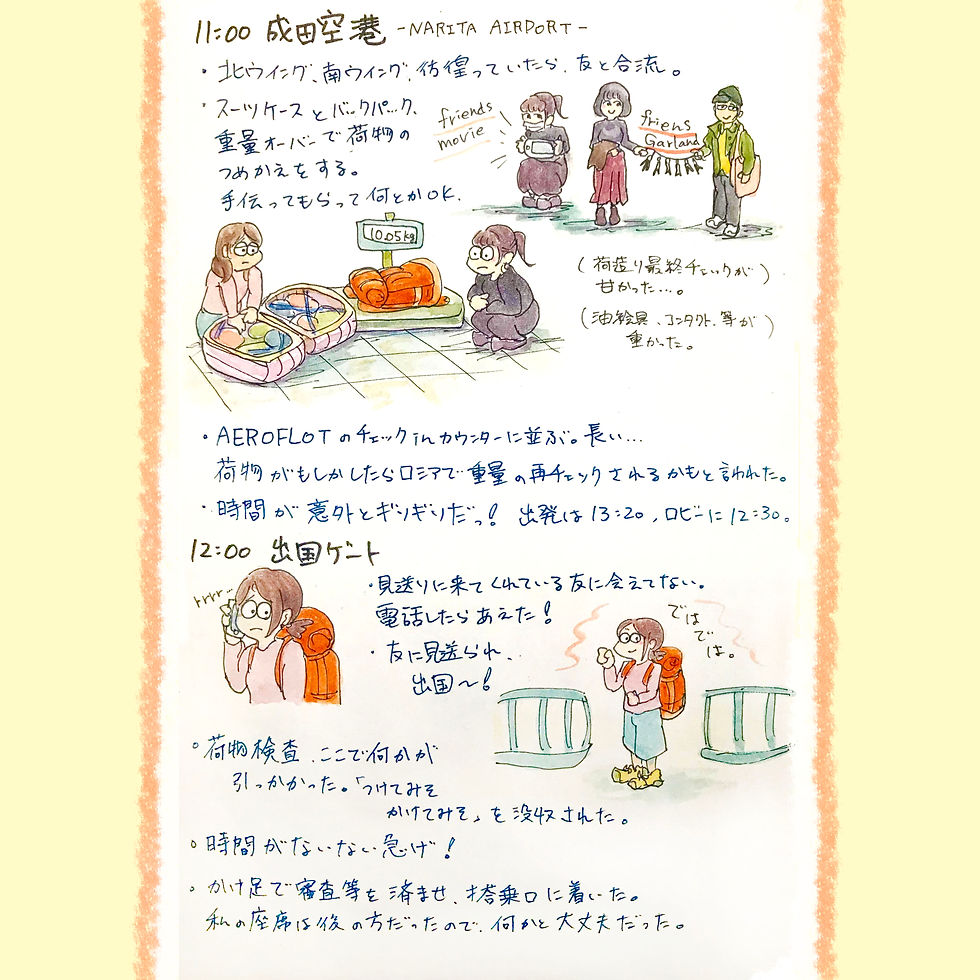 11:00 成田空港 -NARITA AIRPORT-
・北ウイング、南ウイング、彷徨っていたら、友と合流。
・スーツケースとバックパック、
重量オーバーで荷物の
つめかえをする。
手伝ってもらって何とかOK.
friends
movie
friens
Garland
10.05kg
(荷造り最終チェックが)
甘かった…。
(油絵具、コンタクト、等が)
重かった。
・AEROFLOTのチェックinカウンターに並ぶ。長い…
荷物がもしかしたらロシアで重量の再チェックされるかもと言われた。
・時間が意外とギリギリだっ! 出発は13:20,ロビーに12:30。
12:00 出国ゲート
rrrr..
・見送りに来てくれている友に会えてない。
電話したらあえた!
・友に見送られ、
出国〜!
では
では
は。
○荷物検査、ここで何かが
引っかかった。「つけてみそ
かけてみそ」を没収された。
○時間がないない急げ!
○かけ足で審査等を済ませ、搭乗口に着いた。
私の座席は後の方だったので、何かと大丈夫だった。